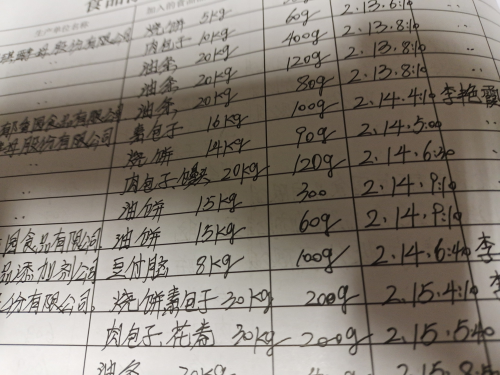 生产单位名称 加入的食品
股份有限公司 烧饼 5kg 60g 2.13.6:10
肉包子 10kg 400g 2.13.8:10
油条 20kg 120g 2.13.8:10
油条 20kg 80g 2.13.8:10
食品有限公司 油条 20kg 100g 2.14.4:10 李艳
股份有限公司 素包子 16kg 90g 2.14.5:00
烧饼 14kg 120g 2.14.6:30
肉包子 馒头 20kg 300 2.14.9:10
油饼 15kg 60g 2.14.9:10
园食品有限公司 油饼 15kg 100g 2.14.6:40 李
品添加剂公司 豆付脑 8kg 200g 2.15.4:10 李
份有限公司 烧饼素包子 30kg 200g 2.15.5:40
肉包子.花卷 30kg
油条 20kg 2.15.8: